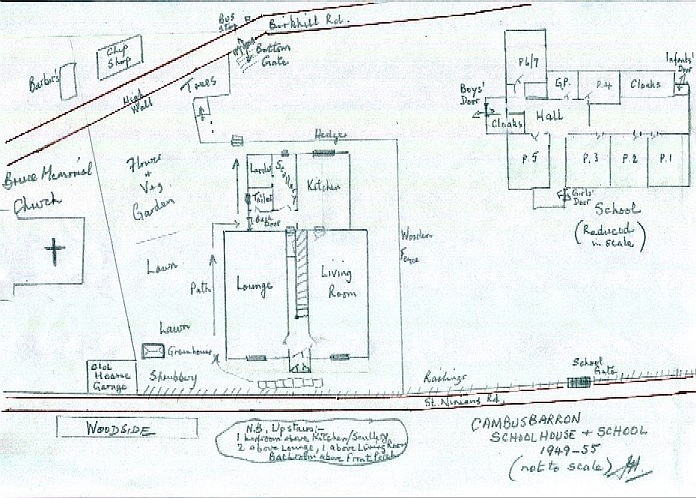 Bus
Stop
Birkhill Rd.
Bottom
Gate
Chip
Shop
Barber's
High
Wall
Trees
Bruce Memorial
Church
Flower
+
Veg.
Garden
Hedge
Larder
Scullery
Toilet
Kitchen
Back
Door
Lawn
Path
Lounge
Living
Room
Wooden
Fence
Lawn
Greenhouse
Shrubbery
Old
Hearse
Garage
P6/7
G.P.
P.4
Cloaks
Infants'
Door
Boys'
Door
Cloaks
Hall
P.5
P.3
P.2
P.1
Girls'
Door
School
(Reduced
in scale)
School
Gate
Railings
St. Ninians Rd.
WOODSIDE
N.B. Upstairs:-
1 bedroom above Kitchen/Scullery
2 above Lounge, 1 above Living Room
Bathroom above Front Porch
CAMBUSBARRON
SCHOOLHOUSE + SCHOOL
1949-55
(not to scale)